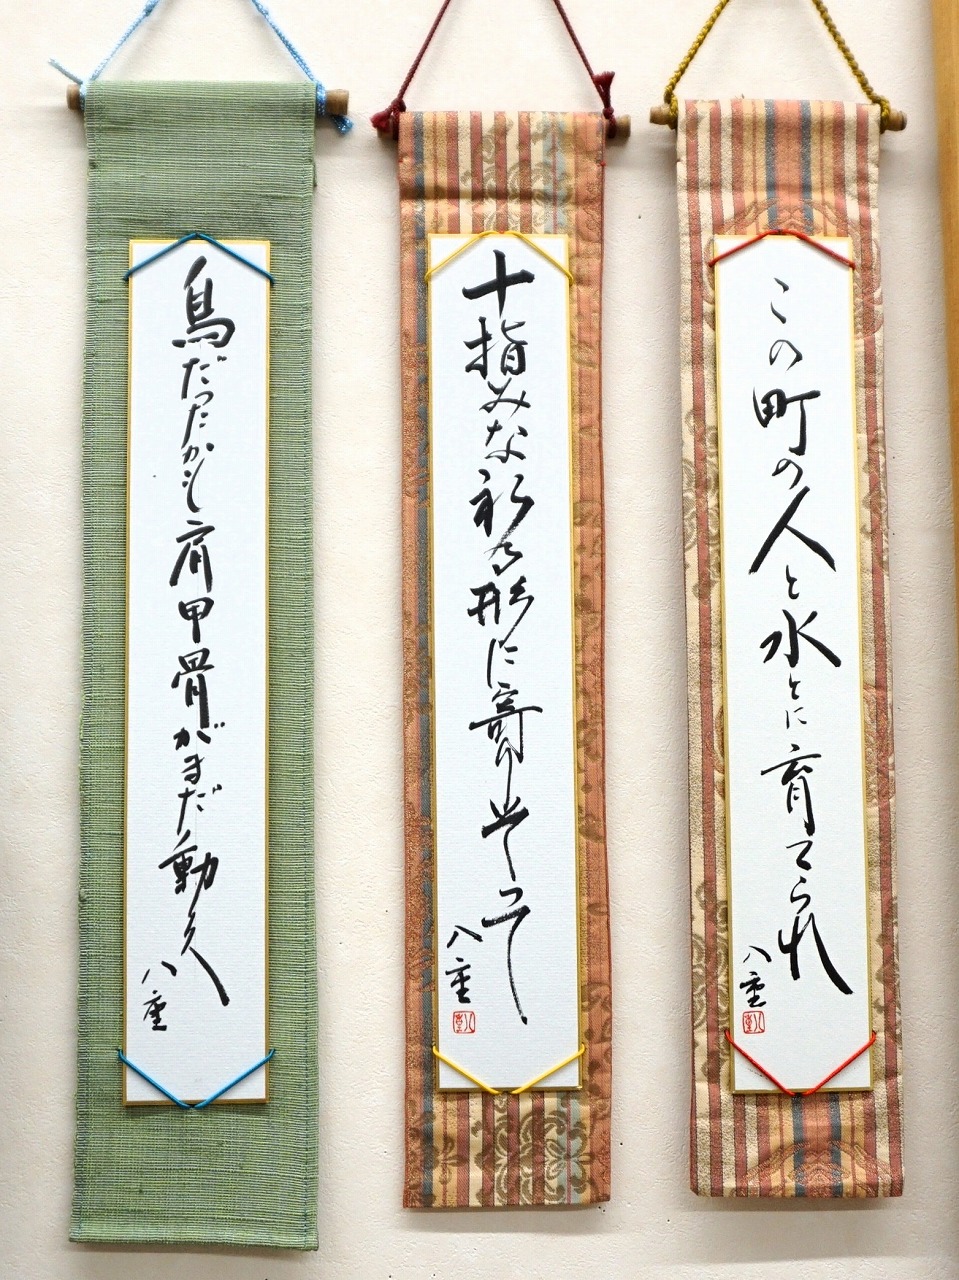 この町の人と水とに育てられ
八重
八重
十指みな祈る形に寄りそって
八重
八重
鳥だったかも肩甲骨がまだ動く
八重